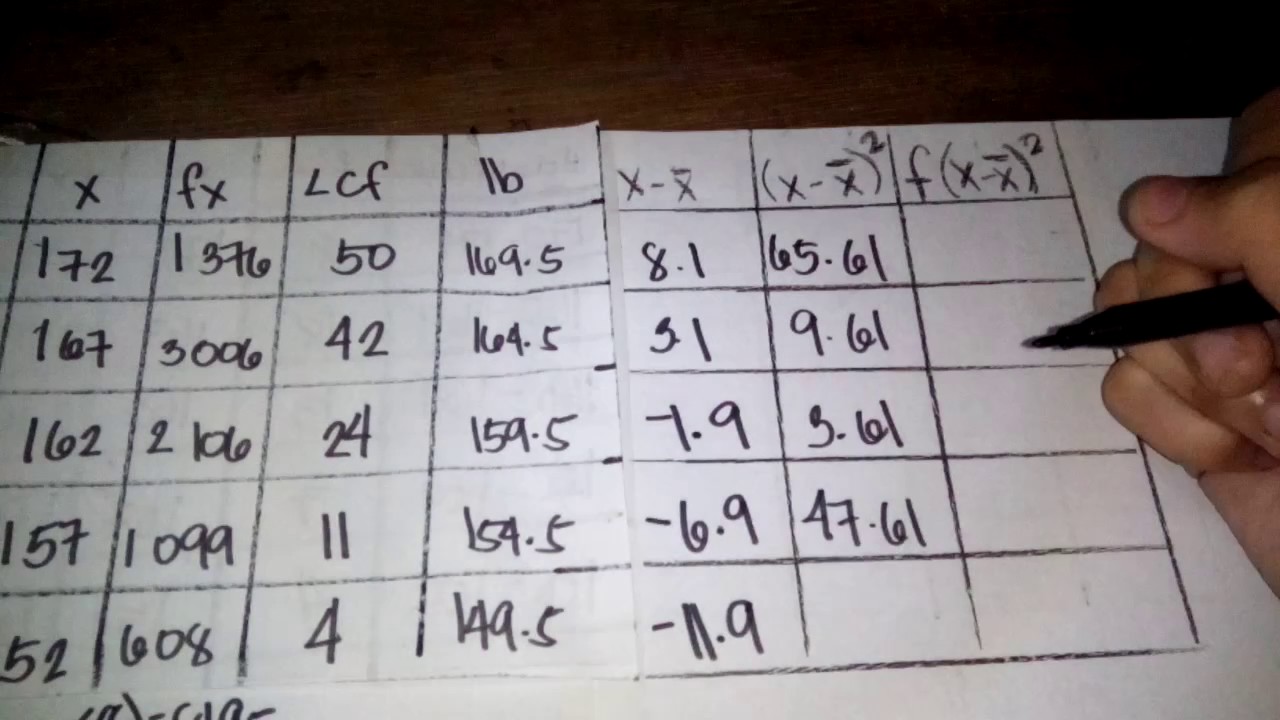 x fx <cf lb x-x̄ (x-x̄)² f(x-x̄)²
172 1376 50 169.5 8.1 65.61
167 3006 42 164.5 3.1 9.61
162 2106 24 159.5 -1.9 3.61
157 1099 11 154.5 -6.9 47.61
52 608 4 149.5 -11.9